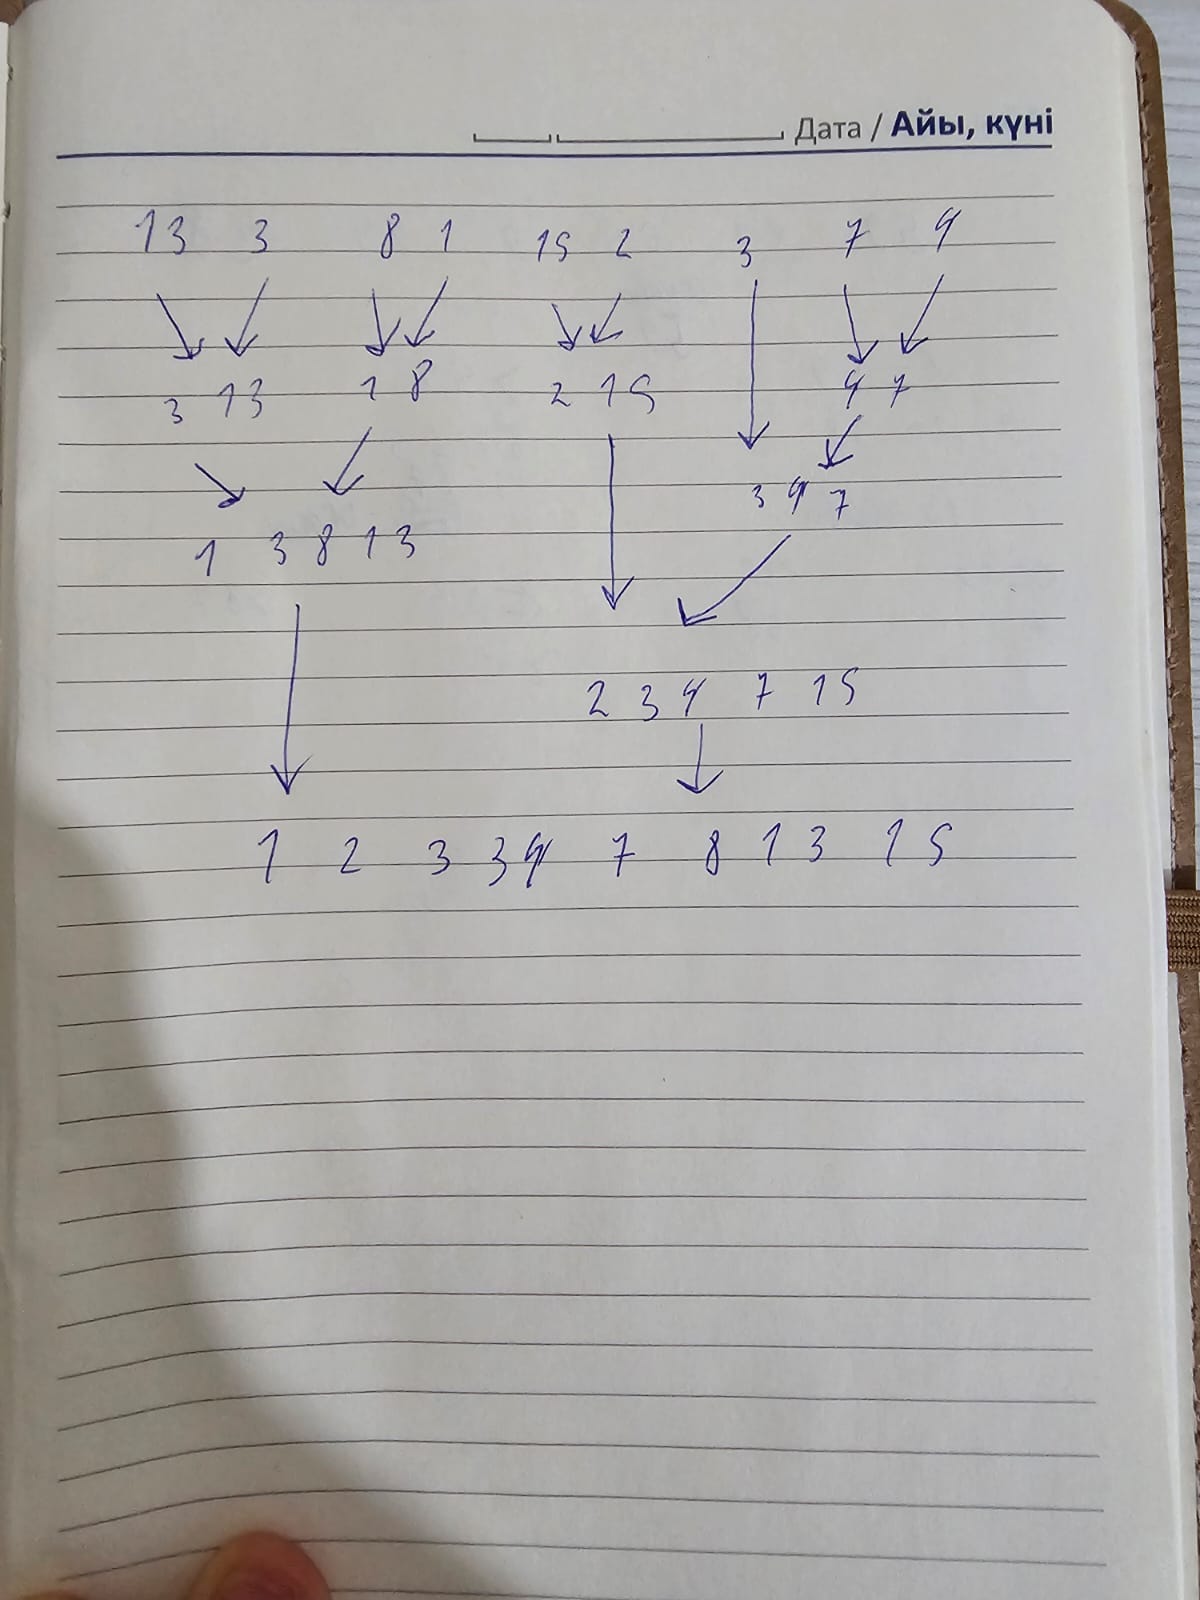 Дата / Айы, күні
13 3 8 1 15 2 3 7 4
3 13 1 8 2 15 4 7
3 4 7
1 3 8 13
2 3 4 7 15
1 2 3 3 4 7 8 13 15